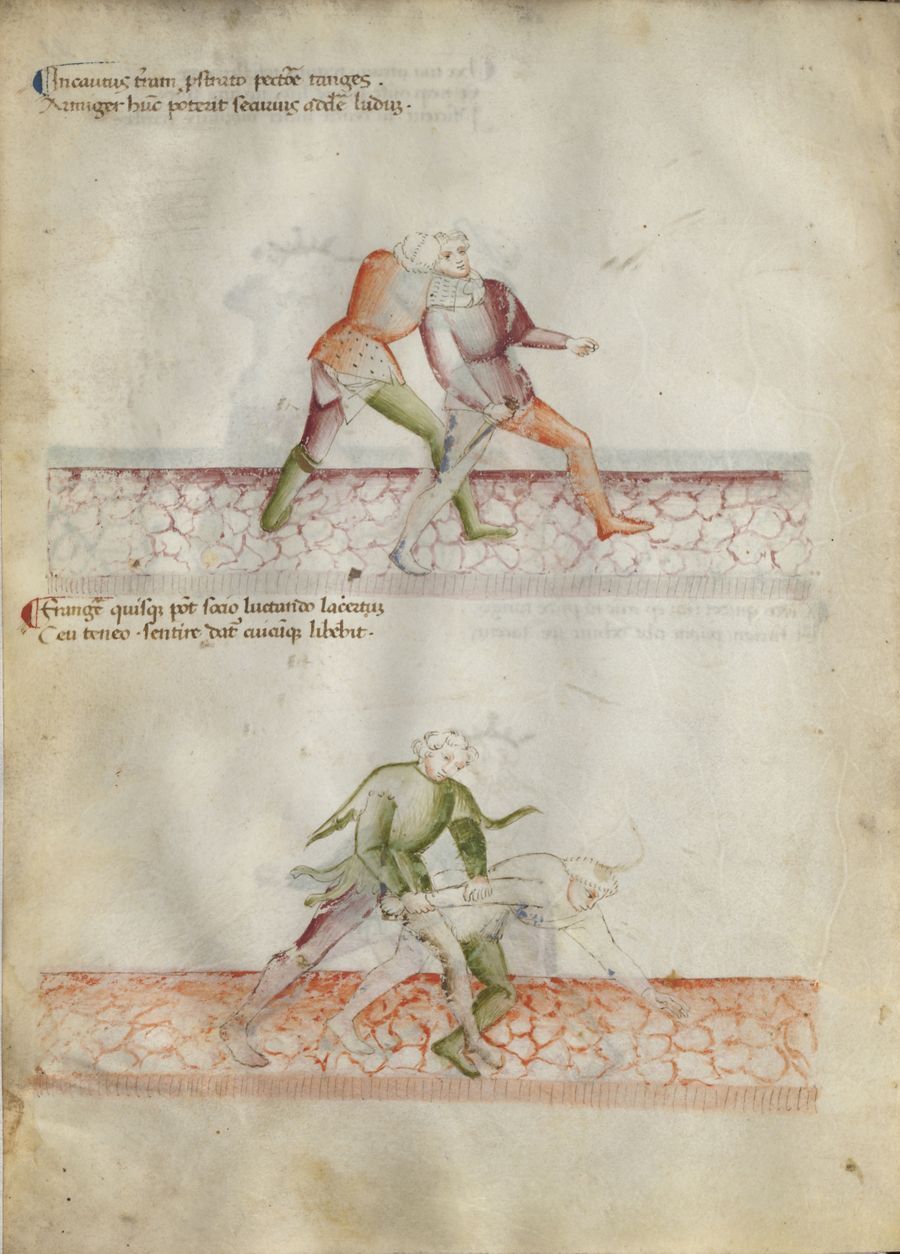 Incautus t̃ram ꝓstrato pectõe tanges .
Armiger hũc poterit securius adde᷑ ludũ .
Frange᷑ quisqꝫ põt socio luctando lac̉ertũ
Ceu teneo . sentire dat᷑ cuicũqꝫ libebit .